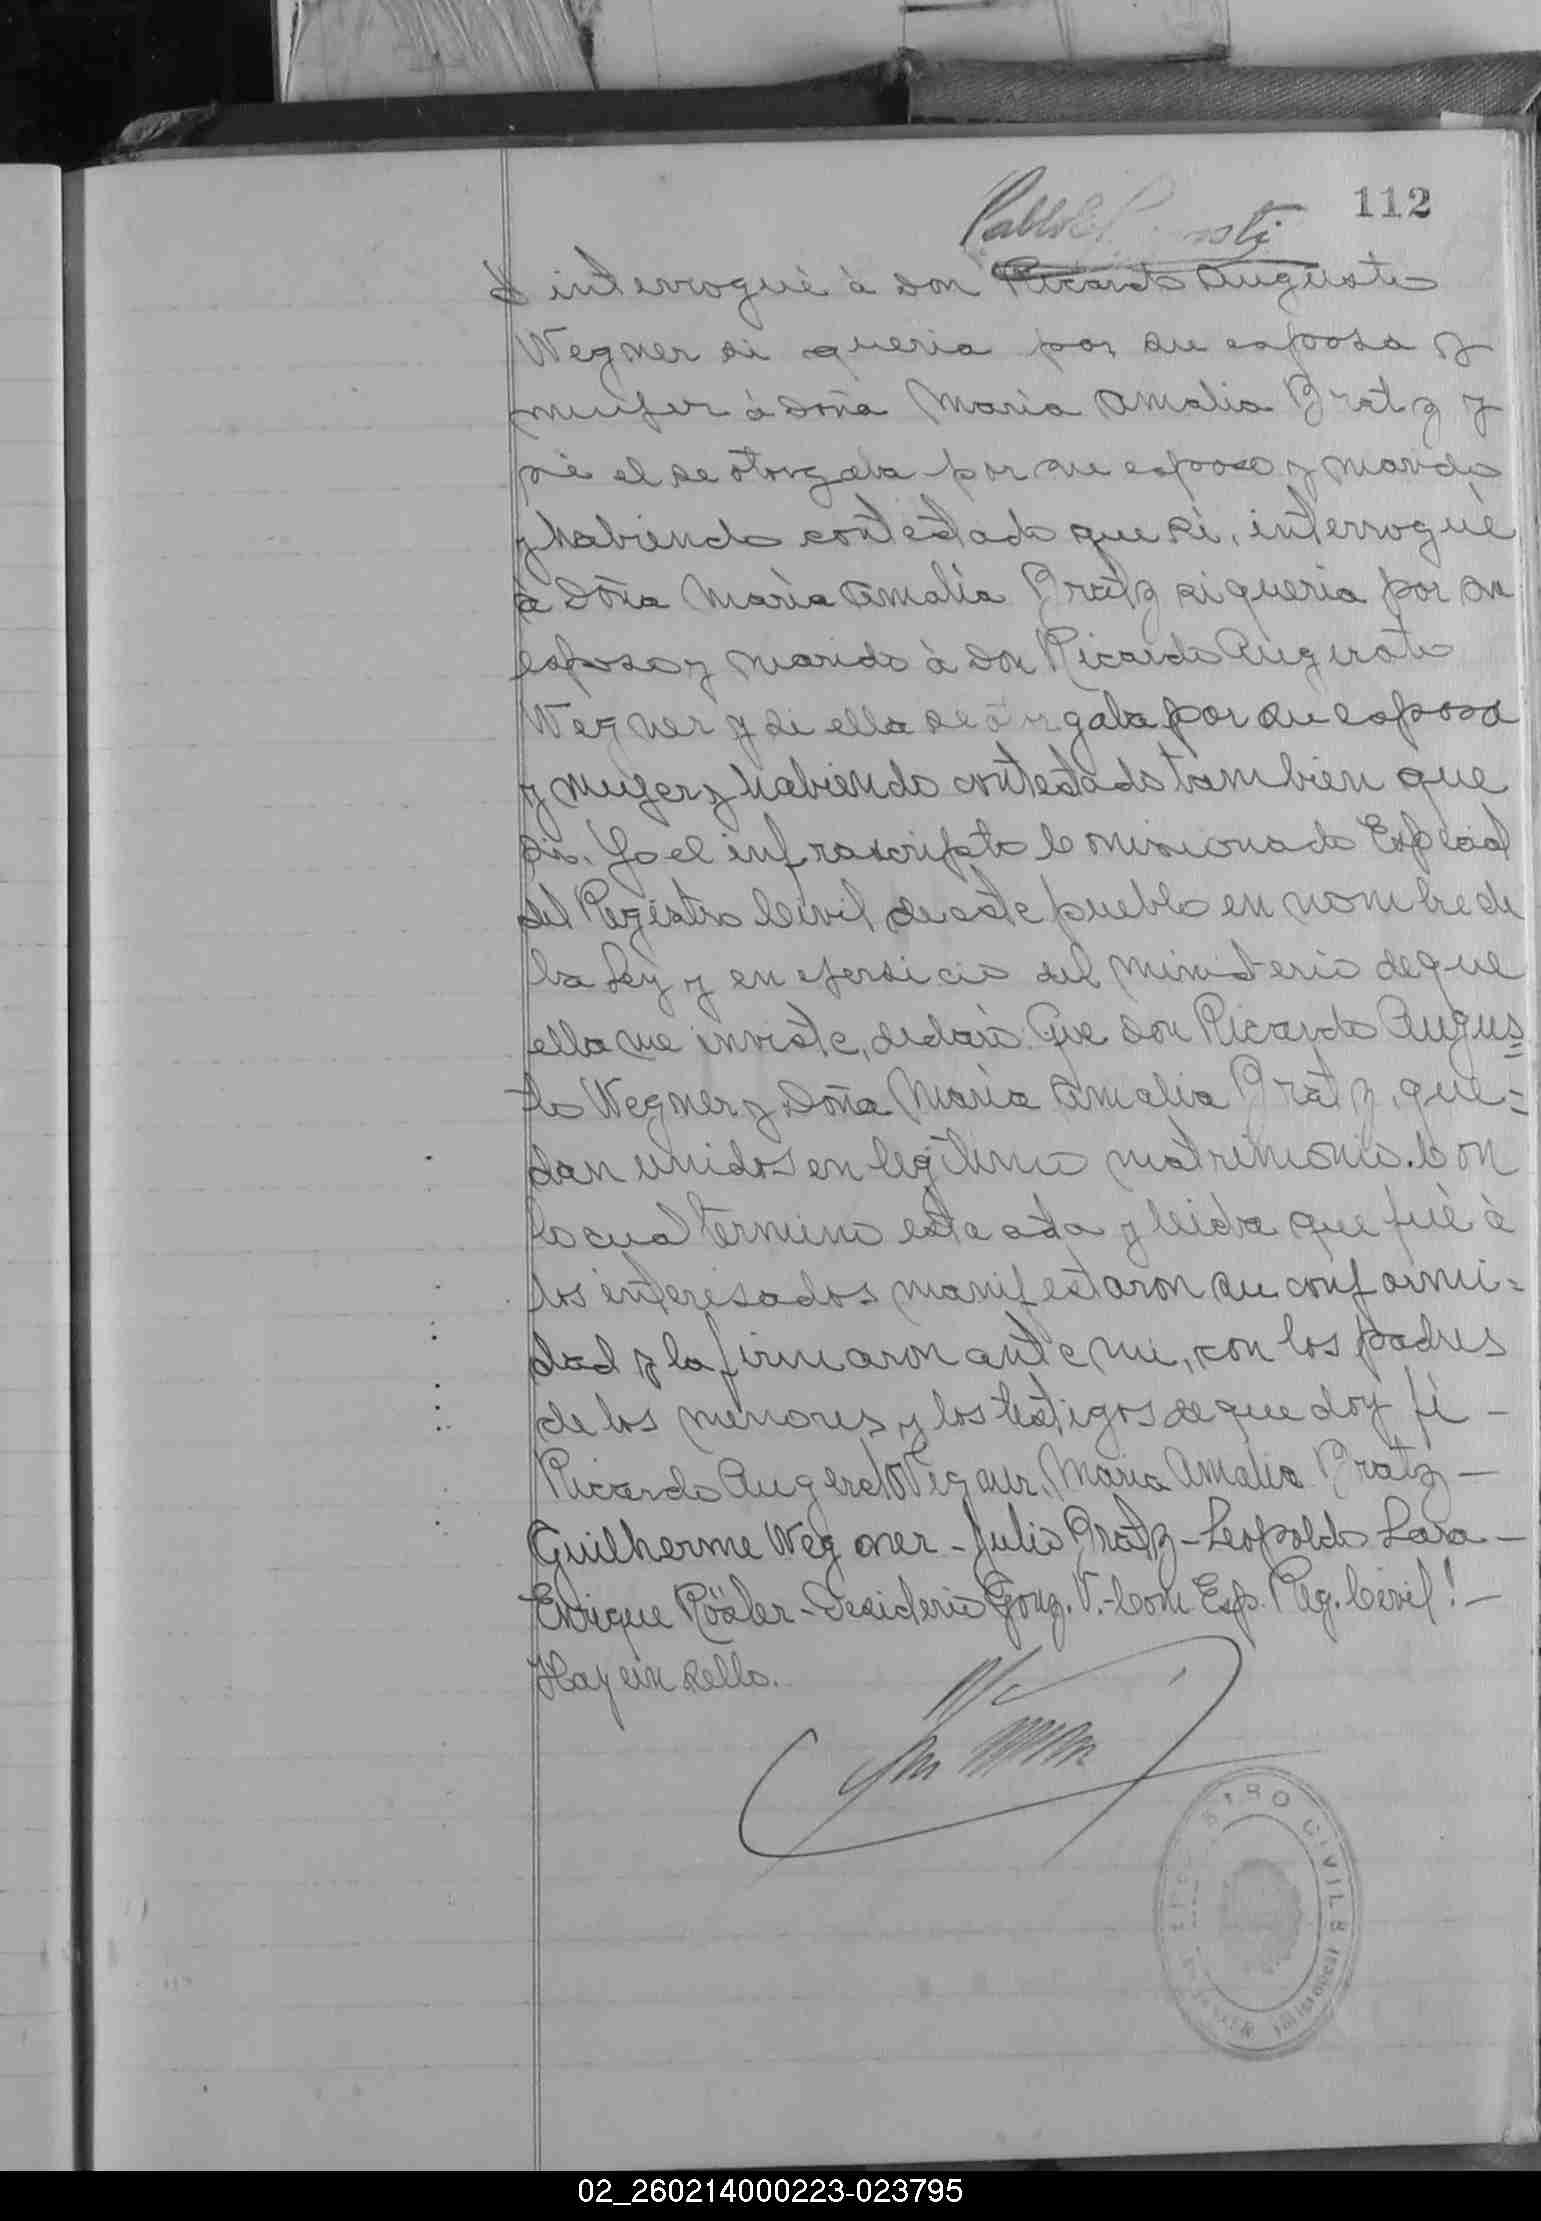 112
é interrogué à don Ricardo Augusto
Wegner si queria por su esposa y
mujer à doña Maria Amalia Bratz y
si el se otorgaba por su esposo y marido
y habiendo contestado que si, interrogué
à doña Maria Amalia Bratz si queria por su
esposo y marido à don Ricardo Augusto
Wegner y si ella se otorgaba por su esposa
y mujer y habiendo contestado tambien que
si. Yo el infrascripto Comisionado Especial
del Registro Civil de este pueblo en nombre de
la Ley y en ejersicio del ministerio de que
ella me inviste, declaró: Que don Ricardo Augus=
to Wegner y Doña Maria Amalia Bratz, que=
dan unidos en legitimo matrimonio. Con
lo cual termino esta acta y leida que fué à
los interesados manifestaron su conformi=
dad y la firmaron ante mi, con los padres
de los menores y los testigos de que doy fé -
Ricardo Augusto Wegner, Maria Amalia Bratz -
Guilherme Wegner - Julio Bratz - Leopoldo Lara -
Enrique Rösler - Desiderio Gonz. V. - Com. Esp. Reg. Civil! -
Hay un sello.
REGISTRO CIVIL
02_260214000223-023795